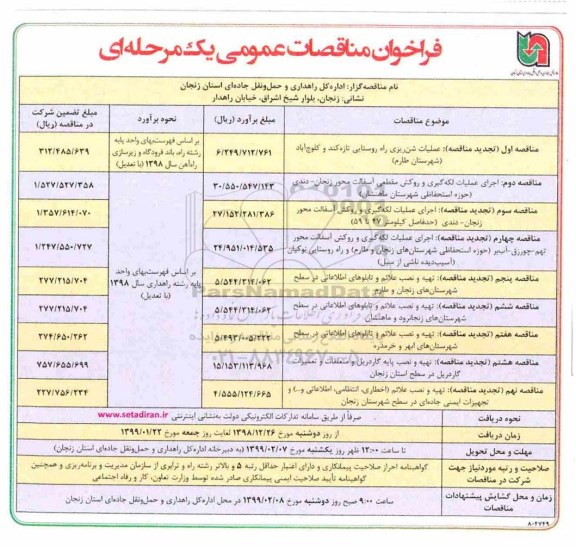 فراخوان مناقصات عمومی یک مرحله‌ای
نام مناقصه‌گزار: اداره‌کل راهداری و حمل‌ونقل جاده‌ای استان زنجان
نشانی: زنجان، بلوار شیخ اشراق، خیابان راهدار
موضوع مناقصات
مبلغ برآورد (ریال)
نحوه برآورد
مبلغ تضمین شرکت
در مناقصه (ریال)
مناقصه اول (تجدید مناقصه): عملیات شن‌ریزی راه روستایی تازه‌کند و کلوچ‌آباد
(شهرستان طارم)
۶/۲۴۹/۷۱۲/۷۶۱
بر اساس فهرست‌بهای واحد پایه
رشته راه، باند فرودگاه و زیرسازی
راه‌آهن سال ۱۳۹۸ (با تعدیل)
۳۱۲/۴۸۵/۶۳۹
مناقصه دوم: اجرای عملیات لکه‌گیری و روکش مقطعی آسفالت محور زنجان-دندی
(حوزه استحفاظی شهرستان ماهنشان)
۳۰/۵۵۰/۵۴۷/۱۴۳
۱/۵۲۷/۵۲۷/۳۵۸
مناقصه سوم (تجدید مناقصه): اجرای عملیات لکه‌گیری و روکش آسفالت محور
زنجان-دندی (حدفاصل کیلومتر ۴۷ تا ۵۹)
۲۷/۱۵۲/۲۸۱/۳۸۶
۱/۳۵۷/۶۱۴/۰۷۰
مناقصه چهارم (تجدید مناقصه): اجرای عملیات لکه‌گیری و روکش آسفالت محور
تهم-چورزق-آب‌بر (حوزه استحفاظی شهرستان‌های زنجان و طارم) و راه روستایی نوکیان
(آسیب‌دیده ناشی از سیل)
۲۴/۹۵۱/۰۱۴/۵۳۵
۱/۲۴۷/۵۵۰/۷۲۷
بر اساس فهرست‌بهای واحد
پایه رشته راهداری سال ۱۳۹۸
(با تعدیل)
مناقصه پنجم (تجدید مناقصه): تهیه و نصب علائم و تابلوهای اطلاعاتی در سطح
شهرستان‌های زنجان و طارم
۵/۵۴۴/۳۱۴/۰۶۲
۲۷۷/۲۱۵/۷۰۴
مناقصه ششم (تجدید مناقصه): تهیه و نصب علائم و تابلوهای اطلاعاتی در سطح
شهرستان‌های زنجانرود و ماهنشان
۵/۵۴۴/۳۱۴/۰۶۲
۲۷۷/۲۱۵/۷۰۴
مناقصه هفتم (تجدید مناقصه): تهیه و نصب علائم و تابلوهای اطلاعاتی در سطح
شهرستان‌های ابهر و خرمدره
۵/۴۹۳/۰۰۵/۲۲۲
۲۷۴/۶۵۰/۲۶۲
مناقصه هشتم (تجدید مناقصه): تهیه و نصب پایه گاردریل و متعلقات و تعمیرات
گاردریل در سطح استان زنجان
۱۵/۱۵۳/۱۱۳/۹۶۸
۷۵۷/۶۵۵/۶۹۹
مناقصه نهم (تجدید مناقصه): تهیه و نصب علائم (اخطاری، انتظامی، اطلاعاتی و...) و
تجهیزات ایمنی جاده‌ای در سطح شهرستان زنجان
۴/۵۵۵/۱۲۴/۶۶۵
۲۲۷/۷۵۶/۲۳۴
نحوه دریافت
صرفاً از طریق سامانه تدارکات الکترونیکی دولت به‌نشانی اینترنتی www.setadiran.ir
زمان دریافت
از روز دوشنبه مورخ ۱۳۹۸/۱۲/۲۶ لغایت روز جمعه مورخ ۱۳۹۹/۰۱/۲۲
مهلت و محل تحویل
تا ساعت ۱۲:۰۰ ظهر روز یکشنبه مورخ ۱۳۹۹/۰۲/۰۷ (به دبیرخانه اداره‌کل راهداری و حمل‌ونقل جاده‌ای استان زنجان)
صلاحیت و رتبه موردنیاز جهت
شرکت در مناقصات
گواهینامه احراز صلاحیت پیمانکاری و دارای اعتبار حداقل رتبه ۵ و بالاتر رشته راه و ترابری از سازمان مدیریت و برنامه‌ریزی و همچنین
گواهینامه تأیید صلاحیت ایمنی پیمانکاری صادر شده توسط وزارت تعاون، کار و رفاه اجتماعی
زمان و محل گشایش پیشنهادات
مناقصات
ساعت ۹:۰۰ صبح روز دوشنبه مورخ ۱۳۹۹/۰۲/۰۸ در محل اداره‌کل راهداری و حمل‌ونقل جاده‌ای استان زنجان
۸۰۲۷۴۹
ParsNamadData